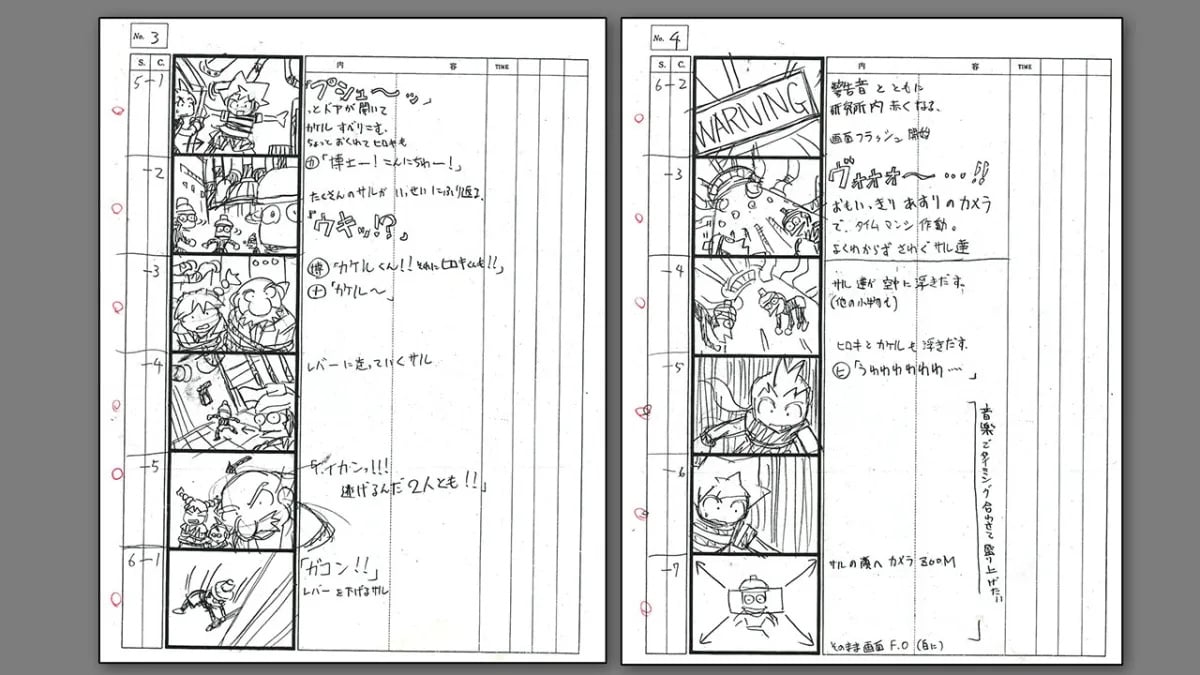 No. 3
S. C. 内 容 TIME
5-1
「プシュ〜ッ」
とドアが開いて
カケル すべりこむ。
ちょっと おくれて ヒロキも
カ「博士ー！こんにちわー！」
-2
たくさんのサルが いっせいにふり返る。
『ウキッ!?』
-3
博「カケルくん!! それにヒロキくんも!!」
ナ「カケル〜」
-4
レバーに走っていくサル
-5
イカンッ!!!
逃げるんだ 2人とも!!」
6-1
「ガコン!!」
レバーを下げるサル
No. 4
S. C. 内 容 TIME
6-2
WARNING
警告音とともに
研究所内 赤くなる。
画面フラッシュ 開始
-3
ヴォォォ〜…!!
おもいっきり あおりのカメラ
で、タイムマシン 作動。
よくわからず さわぐ サル達
-4
サル達が 空中に 浮きだす。
(他の小物も)
ヒロキとカケルも 浮きだす。
-5
ヒ「うわわわわわわ…」
音楽でタイミング合わせて盛り上げたい
-6
-7
サルの顔へ カメラ ZOOM
そのまま画面 F.O (白に)